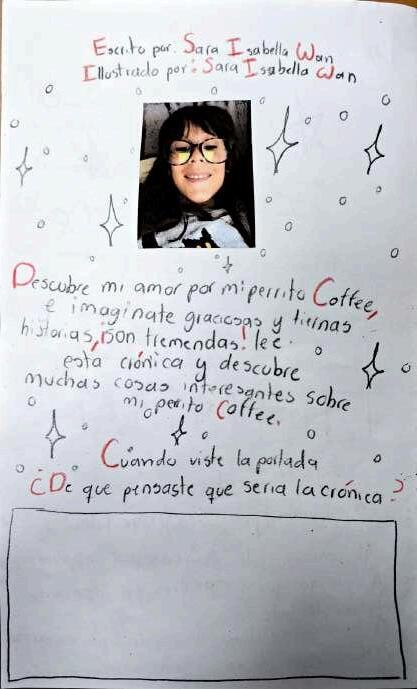 Escrito por: Sara Isabella Wan
Illustrado por: Sara Isabella Wan
Descubre mi amor por mi perrito Coffee,
e imaginate graciosas y tiernas
historias, ¡son tremendas! lee
esta crónica y descubre
muchas cosas interesantes sobre
mi perrito Coffee.
Cuándo viste la portada
¿De que pensaste que seria la crónica?